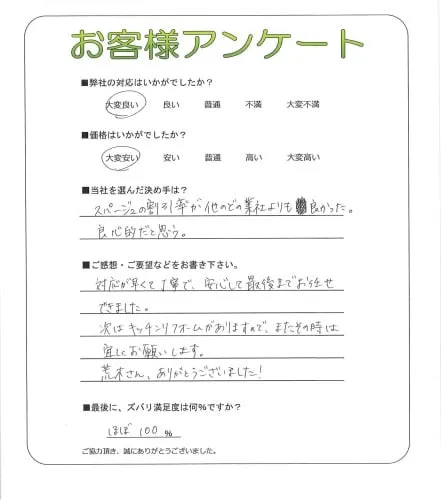 お客様アンケート
■弊社の対応はいかがでしたか?
大変良い 良い 普通 不満 大変不満
■価格はいかがでしたか?
大変安い 安い 普通 高い 大変高い
■当社を選んだ決め手は?
スパージュの割引率が他のどの業社よりも良かった。
良心的だと思う。
■ご感想・ご要望などをお書き下さい。
対応が早くて丁寧で、安心して最後までお任せ
できました。
次はキッチンリフォームがありますので、またその時は
宜しくお願いします。
荒木さん、ありがとうございました!
■最後に、ズバリ満足度は何%ですか?
ほぼ 100 %
ご協力頂き、誠にありがとうございました。